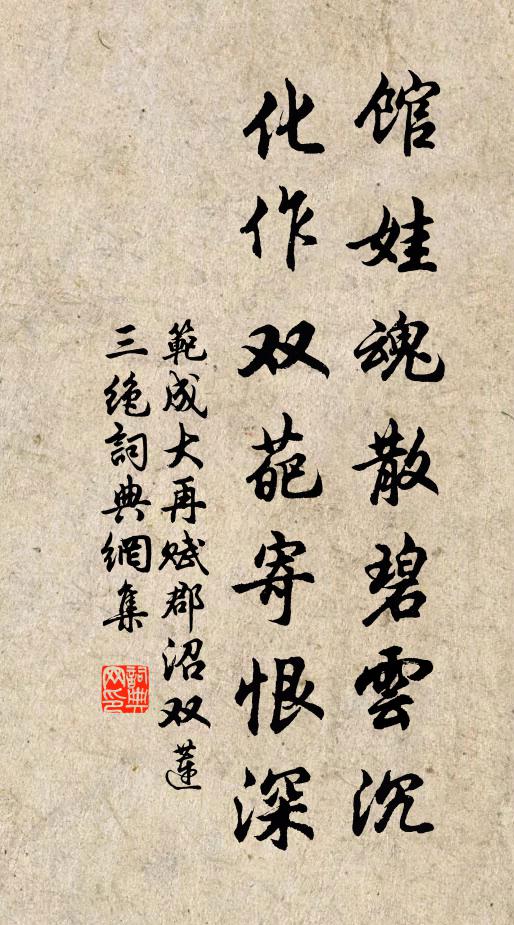 馆娃魂散碧雲沉
化作双葩寄恨深
範成大再赋郡沼双蓮
三绝詞典網集
詞典网印